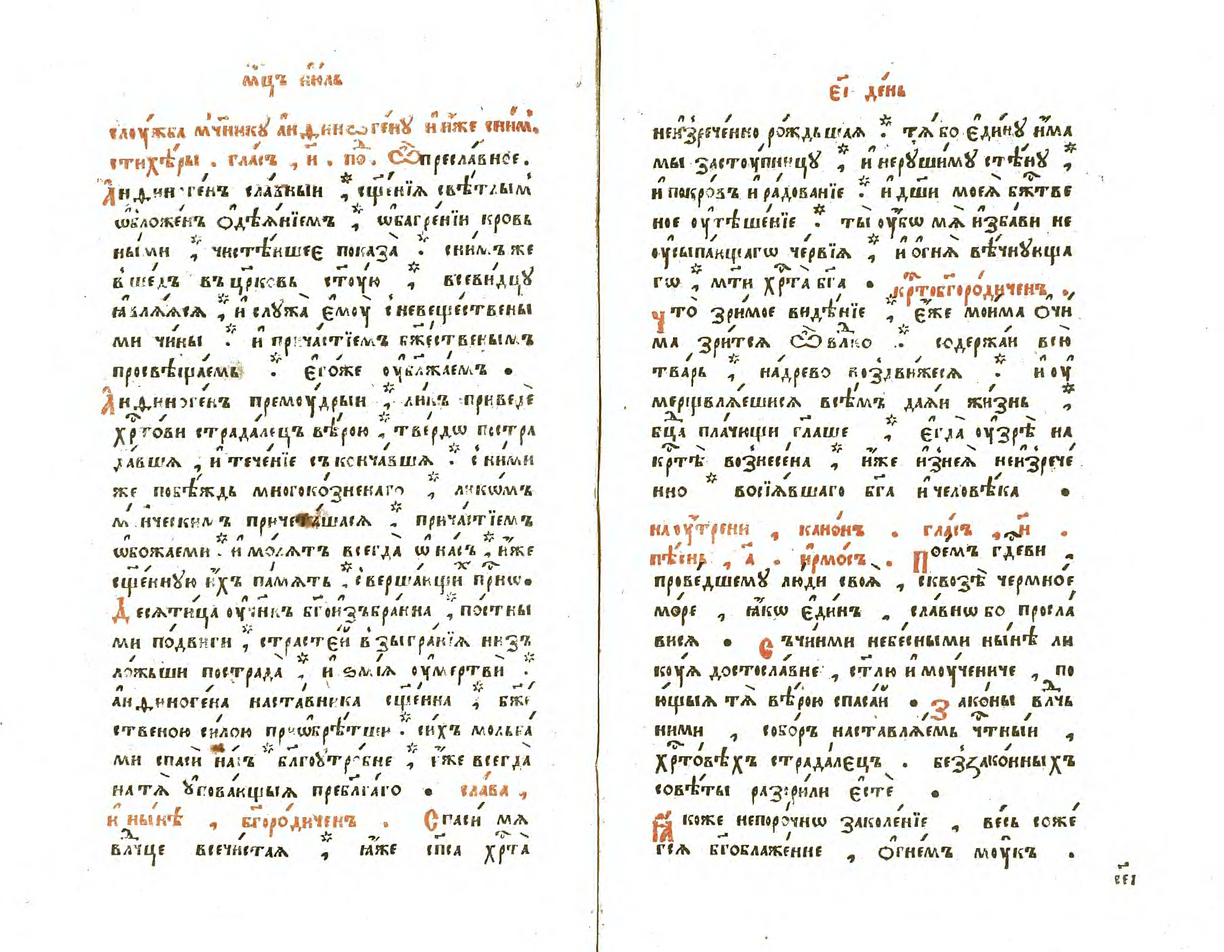 мⷭ҇цъ ию́ль
слоу́жба мч҃нику а҆нѳиногéну и҆и́же сни́м.
стихѣ́ры . гла́съ , и҃ . по . Ѽ преслáвное .
А҆нѳиногéнъ слáвныи , сщ҃éнїѧ свѣ́тлымъ
ѡ҆бложéнъ ѻ҆дѣѧ́нїемъ , ѡ҆багрéнїи кровь
ны́ми , чистѣ́ишее показа̀ . сни́мъже
вшéдъ въцр҃ковь ст҃у́ю , всеви́дцу
ꙗ҆влѧ́ѧсѧ , и҆ слу́жа є҆моу̀ сневещéствены
ми чи́ны . и҆ причáстїемъ бж҃éственымъ
просвѣщáемь . є҆го́же оу҆блажáемъ .
А҆нѳиногéнъ премоу́дрыи , ли́къ приведé
хрⷭ҇то́ви страдáлецъ вѣ́рою , твéрдѡ постра
дáвшѧ , и҆ течéнїе съкончáвшѧ . сни́ми
же побѣ́ждь многокóзненаго , ли́кѡмъ
мч҃ническимъ причетáшасѧ , причáстїемъ
ѡ҆божáеми . и҆ мо́лѧтъ всегдà ѡ҆ нáсъ , и҆́же
сщ҃éнную и҆́хъ пáмѧть , свершáющи при́сѡ .
Десѧти́ца оу҆чн҃къ бг҃ои҆збрáнна , по́стны
ми по́двиги , страстéи взыгрáнїѧ ни́зъ
ло́жьши пострадà , и҆ ѕмі́ѧ оу҆мертвѝ .
а҆нѳиногéна настáвника сщ҃éнна , бжⷭ҇é
ственою си́лою приѡбрѣ́тши . си́хъ мольбá
ми спасѝ нáсъ благоутро́бне , и҆́же всегдà
натѧ̀ оу҆повáющыѧ преблагáго . слáва ,
и҆ ны́нѣ , бг҃оро́диченъ . Спасѝ мѧ̀
влⷣчце всечи́стаѧ , ꙗ҆́же сп҃са хрⷭ҇тà
є҃і дéнь
неи҆зречéнно ро́ждьшаѧ . тѧ́ бо є҆ди́ну и҆́ма
мы застоу́пницу , и҆ неруши́му стѣ́ну ,
и҆ покро́въ и҆ рáдованїе . и҆ дш҃и моеѧ̀ бжⷭ҇тве
ное оу҆тѣшéнїе . ты̀ оу҆́бѡ мѧ̀ и҆збáви не
оу҆сыпáющагѡ чéрвїѧ , и҆ ѻ҆гнѧ̀ вѣ́чнующа
гѡ , мт҃и хрⷭ҇тà бг҃а . крⷭ҇тобг҃оро́диченъ .
Что̀ зри́мое видѣ́нїе , є҆́же мои́ма ѻ҆чи
ма зри́тсѧ Ѽ влⷣко . содержáи всю̀
твáрь , надрéво воздви́жесѧ . и҆ оу҆
мерщвлѧ́ешисѧ всѣ́мъ даѧ́и жи́знь ,
бц҃а плáчющи гл҃аше , є҆гдà оу҆зрѣ̀ на
крⷭ҇тѣ̀ вознесéна , и҆́же и҆знеѧ̀ неи҆зречé
нно восїѧ́вшаго бг҃а и҆ человѣ́ка .
на оу҆́трени , кано́нъ . гла́съ , и҃ .
пѣ́снь , а҃ . и҆рмо́съ . Поéмъ гдⷭ҇еви ,
провéдшему лю́ди своѧ̀ , сквозѣ̀ чермно́е
мо́ре , ꙗ҆́кѡ є҆ди́нъ , слáвнѡ бо прослá
висѧ . Съчи́нми небéсными ны́нѣ ли
коу́ѧ достослáвне , ст҃лю и҆ моу́чениче , по
ю́щыѧ тѧ̀ вѣ́рою спасáи . Зако́ны влⷣчь
ними , собо́ръ наставлѧ́емь чтⷭ҇ныи ,
хрⷭ҇товѣхъ страдáлецъ . беззако́нныхъ
совѣ́ты разори́ли є҆стè .
Ꙗ҆́коже непоро́чнѡ заколéнїе , вéсь соже
гсѧ бг҃облажéнне , ѻ҆гнéмъ моу́къ .
є҃еі